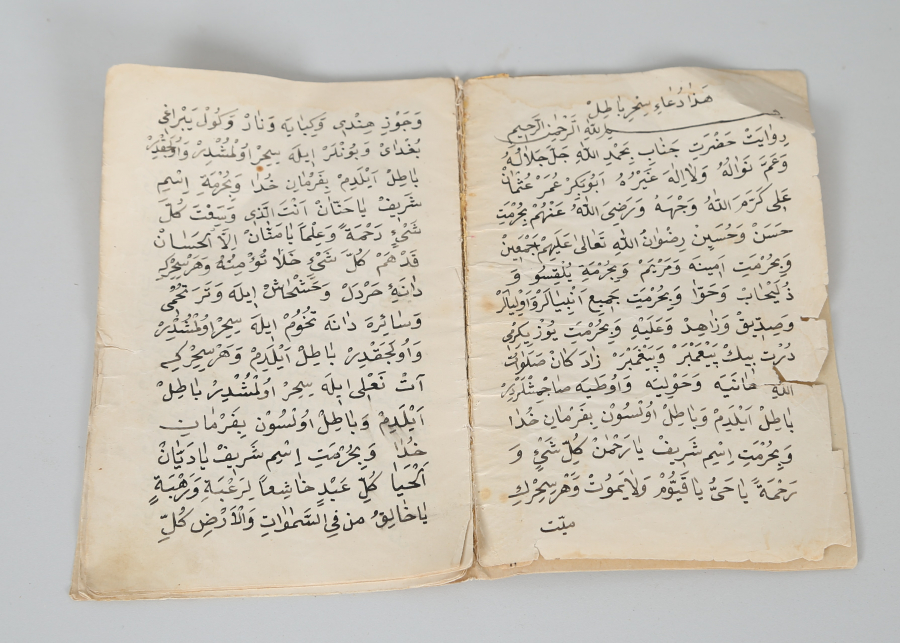 هَذَا دُعَاءِ سِحِرْ بَاطِلْ
بسم اللّٰه الرَّحْمٰنِ الرَّحِيمِ
رِوَايَتْ حَضْرَتِ جَنَابِ بِحَمْدِ اللّٰهِ جَلَّ جَلَالُهُ
وَعَمَّ نَوَالُهُ وَلَا اِلٰهَ غَيْرُهُ اَبُو بَكِرْ عُمَرْ عُثْمَانْ
عَلِى كَرَّمَ اللّٰهُ وَجْهَهُ وَرَضِىَ اللّٰهُ عَنْهُمْ بِحُرْمَتِ
حَسَنْ وَحُسَيِنْ رِضْوَانُ اللّٰهِ تَعَالٰى عَلَيْهِمْ اَجْمَعِينْ
وَبِحُرْمَتِ اٰمِينَه وَمَرْيَمْ وَبِحُرْمَةِ بُلْقِسُو وَ
ذُلَيْحَابَ وَحَوَّا وَبِحُرْمَتِ جَمِيعِ اَنْبِيَالَرْ وَاَوْلِيَالَرْ
وَصِدِّيقْ وَزَاهِدْ وَعَلَيْهِ وَبِحُرْمَتِ يُوزْ يِكِرْمِى
دُرْت بِيكْ پَيْغَمْبَرْ وَپَيْغَمْبَرْ زَادَ كَانْ صَلَوَاتُ
اللّٰهِ
بَاطِلْ اَيْلَدِمْ وَبَاطِلْ اُولْسُونْ بِفَرْمَانِ خُدَا
وَبِحُرْمَتِ اِسْمِ شَرِيفْ يَا رَحْمٰنْ كُلِّ شَيْءٍ وَ
رَحْمَةً يَا حَىُّ يَا قَيُّومْ وَلَا يَمُوتْ وَهَرْ سِحِرْكِ
ميّت
وَجَوْزِ هِنْدِى وَكَبَابَه وَنَارْ وَكُولْ يَپْرَاغِى
بُغْدَاىْ وَبُونْلَرْ اِيلَه سِحِرْ اُولْمُشْدِرْ وَاُولَجَقْدِرْ
بَاطِلْ اَيْلَدِمْ بِفَرْمَانِ خُدَا وَبِحُرْمَةِ اِسْمِ
شَرِيفْ يَا حَنَّانْ اَنْتَ الَّذِى وَسِعْتَ كُلَّ
شَىْءٍ رَحْمَةً وَعِلْمًا يَا مَنَّانْ اِلَّا الْحَسَانْ
قَدْ هَمَّ كُلَّ شَىْءٍ خَلَا تُؤْمِنُهُ وَهَرْ سِحْرِكِه
دَانَهٔ خَرْدَلْ وَخَشْخَاشْ اِيلَه وَتَرَ تُخْمِى
وَسَائِرَه دَانَه تُخُومْ اِيلَه سِحِرْ اُولْمُشْدِرْ
وَاُولَجَقْدِرْ بَاطِلْ اَيْلَدِمْ وَهَرْ سِحِرْ كِه
آتْ نَعْلِى اِيلَه سِحِرْ اُولْمُشْدِرْ بَاطِلْ
اَيْلَدِمْ وَبَاطِلْ اُولْسُونْ بِفَرْمَانِ
خُدَا وَبِحُرْمَتِ اِسْمِ شَرِيفْ يَا دَيَّانْ
اَلْحَيَا كُلِّ عَبْدٍ خَاشِعاً لِرَغْبَةٍ وَرَهْبَةٍ
يَا خَالِقُ مَنْ فِى السَّمٰوَاتِ وَالْاَرْضِ كُلِّ